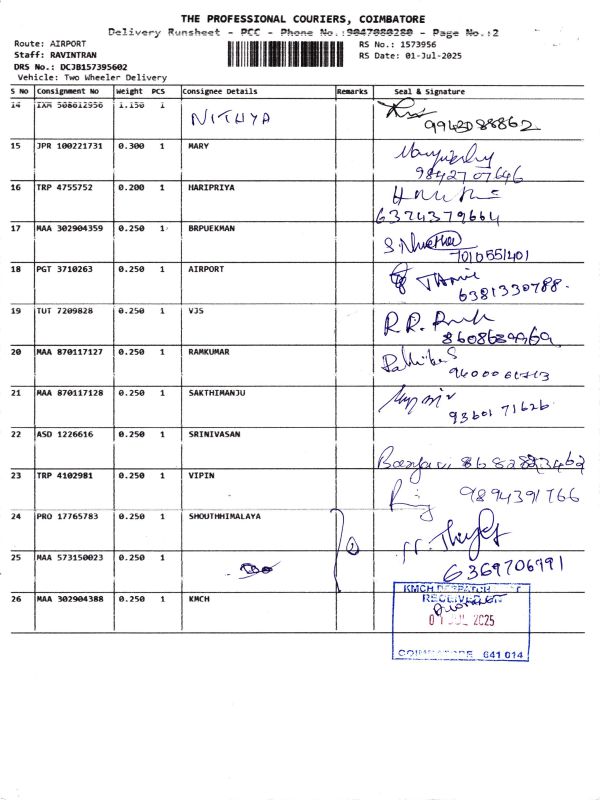 THE PROFESSIONAL COURIERS, COIMBATORE
Delivery Runsheet - PCC - Phone No.:9047080280 - Page No.:2
Route: AIRPORT
Staff: RAVINTRAN
DRS No.: DCJB157395602
Vehicle: Two Wheeler Delivery
RS No.: 1573956
RS Date: 01-Jul-2025
S No Consignment No Weight PCS Consignee Details Remarks Seal & Signature
14 IXM 508612956 1.150 1 NITHYA 9942088862
15 JPR 100221731 0.300 1 MARY 9842707646
16 TRP 4755752 0.200 1 HARIPRIYA 6374379664
17 MAA 302904359 0.250 1 BRPUEKMAN 7010551401
18 PGT 3710263 0.250 1 AIRPORT 6381330788.
19 TUT 7209828 0.250 1 VJS R.R.
20 MAA 870117127 0.250 1 RAMKUMAR
21 MAA 870117128 0.250 1 SAKTHIMANJU 93601 71626
22 ASD 1226616 0.250 1 SRINIVASAN
23 TRP 4102981 0.250 1 VIPIN 9894391766
24 PRO 17765783 0.250 1 SHOUTHHIMALAYA
25 MAA 573150023 0.250 1 6369706991
26 MAA 302904388 0.250 1 KMCH
KMCH DESPATCH
RECEIVED ON
01 JUL 2025
COIMBATORE 641 014